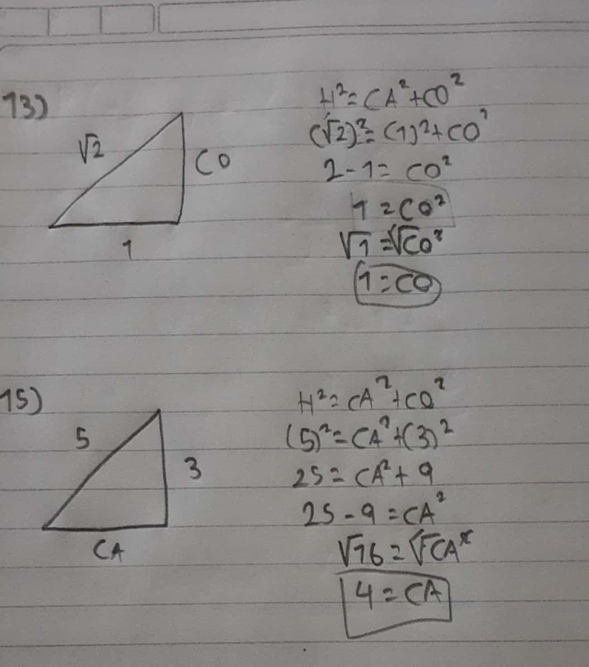 13)
√2
CO
1
H²=CA²+CO²
(√2)²=(1)²+CO²
2-1=CO²
1=CO²
√1=√CO²
1=CO
15)
5
3
CA
H²=CA²+CO²
(5)²=CA²+(3)²
25=CA²+9
25-9=CA²
√16=√CA²
4=CA